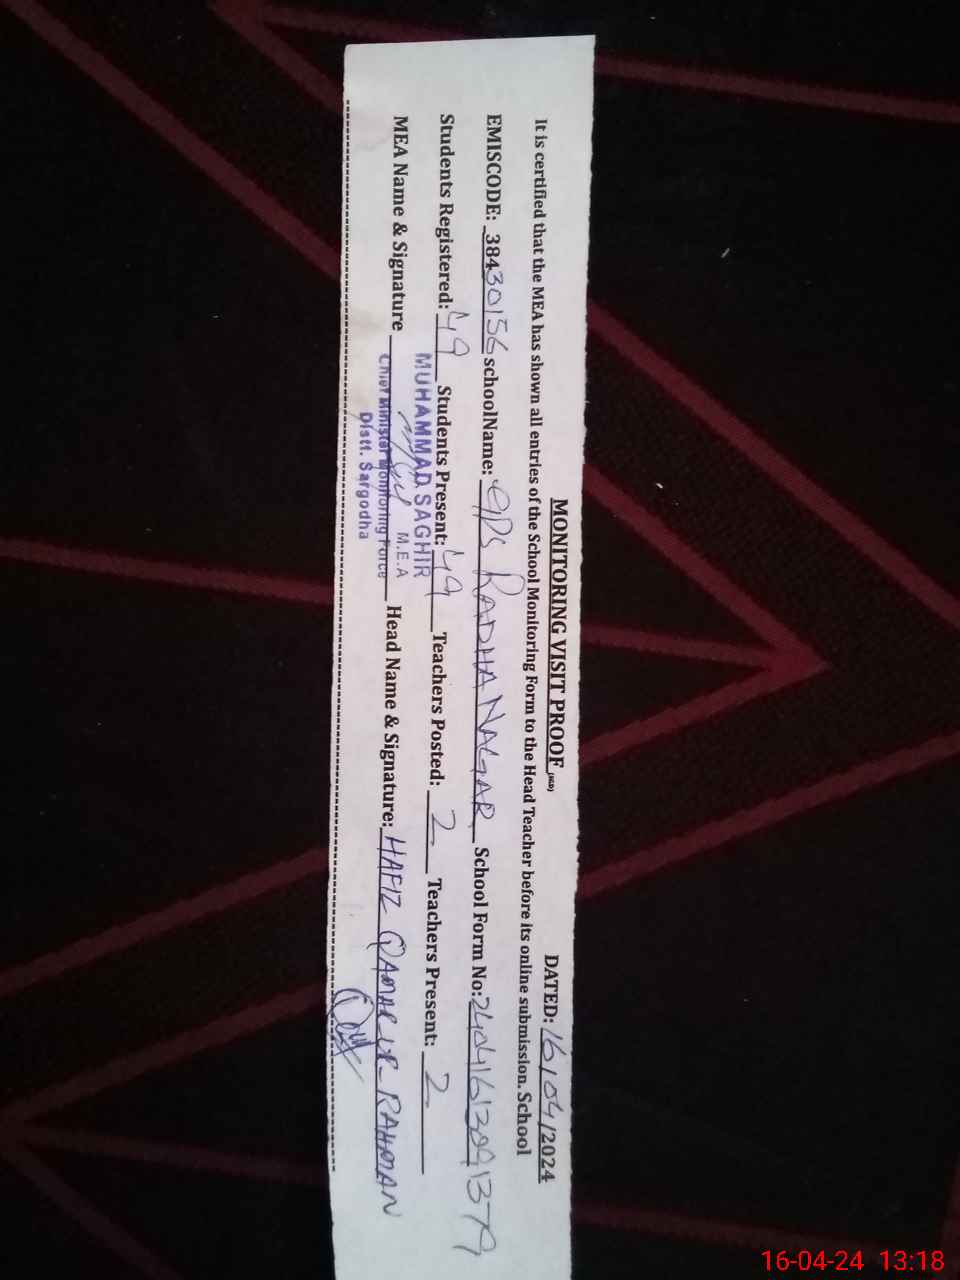 MONITORING VISIT PROOF (SED) DATED: 16/04/2024
It is certified that the MEA has shown all entries of the School Monitoring Form to the Head Teacher before its online submission. School
EMISCODE: 38430156 schoolName: GPS RADHA NAGAR School Form No: 
Students Registered: 49 Students Present: 49 Teachers Posted: 2 Teachers Present: 2
MUHAMMAD SAGHIR
M.E.A
MEA Name & Signature Head Name & Signature: HAFIZ QAMAR UR RAHMAN
Chief Minister Monitoring Force
Distt. Sargodha
16-04-24 13:18